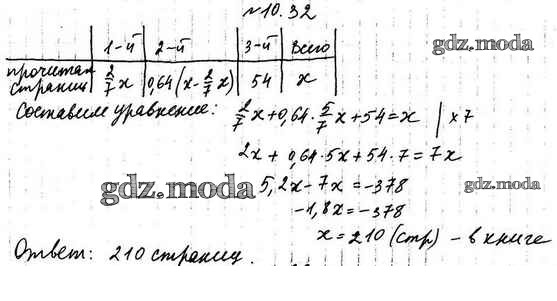 №10.32
1-й 2-й 3-й Всего
gdz.moda
прочитан страниц 2/7 x 0,64(x-2/7 x) 54 x
Составим уравнение: 2/7 x+0,64·5/7 x+54=x | x7
2x+0,64·5x+54·7=7x
gdz.moda 5,2x-7x=-378 gdz.moda
-1,8x=-378
x=210 (стр) - в книге
Ответ: 210 страниц.